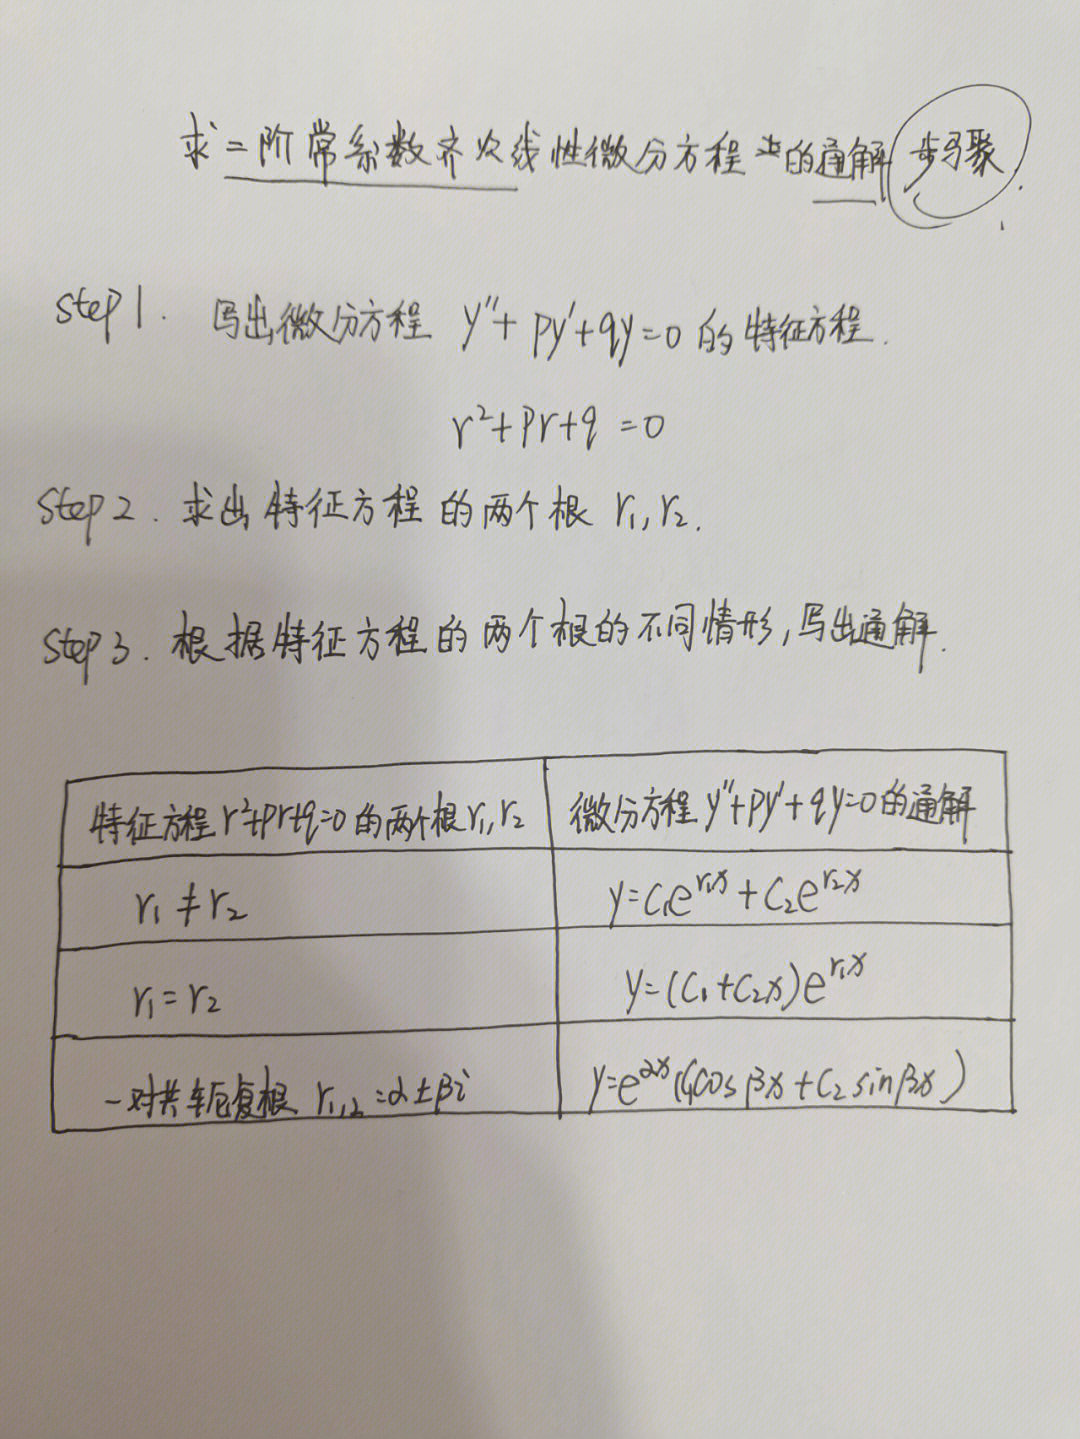 求二阶常系数齐次线性微分方程的通解步骤.
step 1. 写出微分方程 y''+py'+qy=0 的特征方程.
r²+pr+q=0
step 2. 求出特征方程的两个根 r₁,r₂.
step 3. 根据特征方程的两个根的不同情形,写出通解.
特征方程 r²+pr+q=0 的两个根 r₁,r₂ 微分方程 y''+py'+qy=0 的通解
r₁≠r₂ y=C₁e^{r₁x}+C₂e^{r₂x}
r₁=r₂ y=(C₁+C₂x)e^{r₁x}
一对共轭复根 r₁,₂=α±βi y=e^{αx}(C₁cosβx+C₂sinβx)